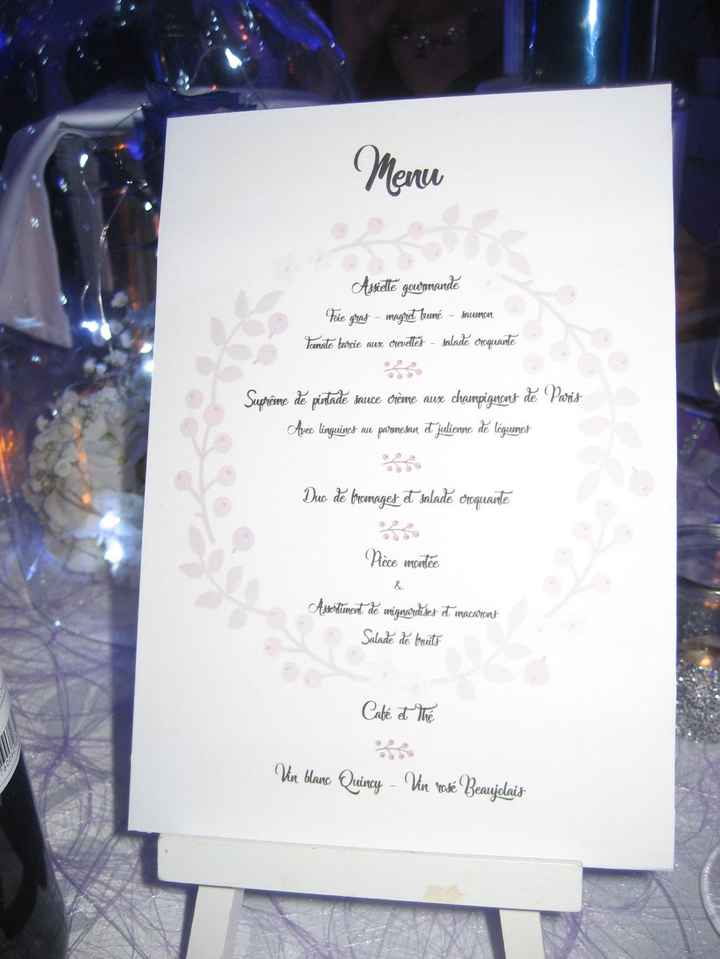 Menu
Assiette gourmande
Foie gras - magret fumé - saumon
Tomate farcie aux crevettes - salade croquante
Suprême de pintade sauce crème aux champignons de Paris
Avec linguines au parmesan et julienne de légumes
Duo de fromages et salade croquante
Pièce montée
&
Assortiment de mignardises et macarons
Salade de fruits
Café et Thé
Vin blanc Quincy - Vin rosé Beaujolais